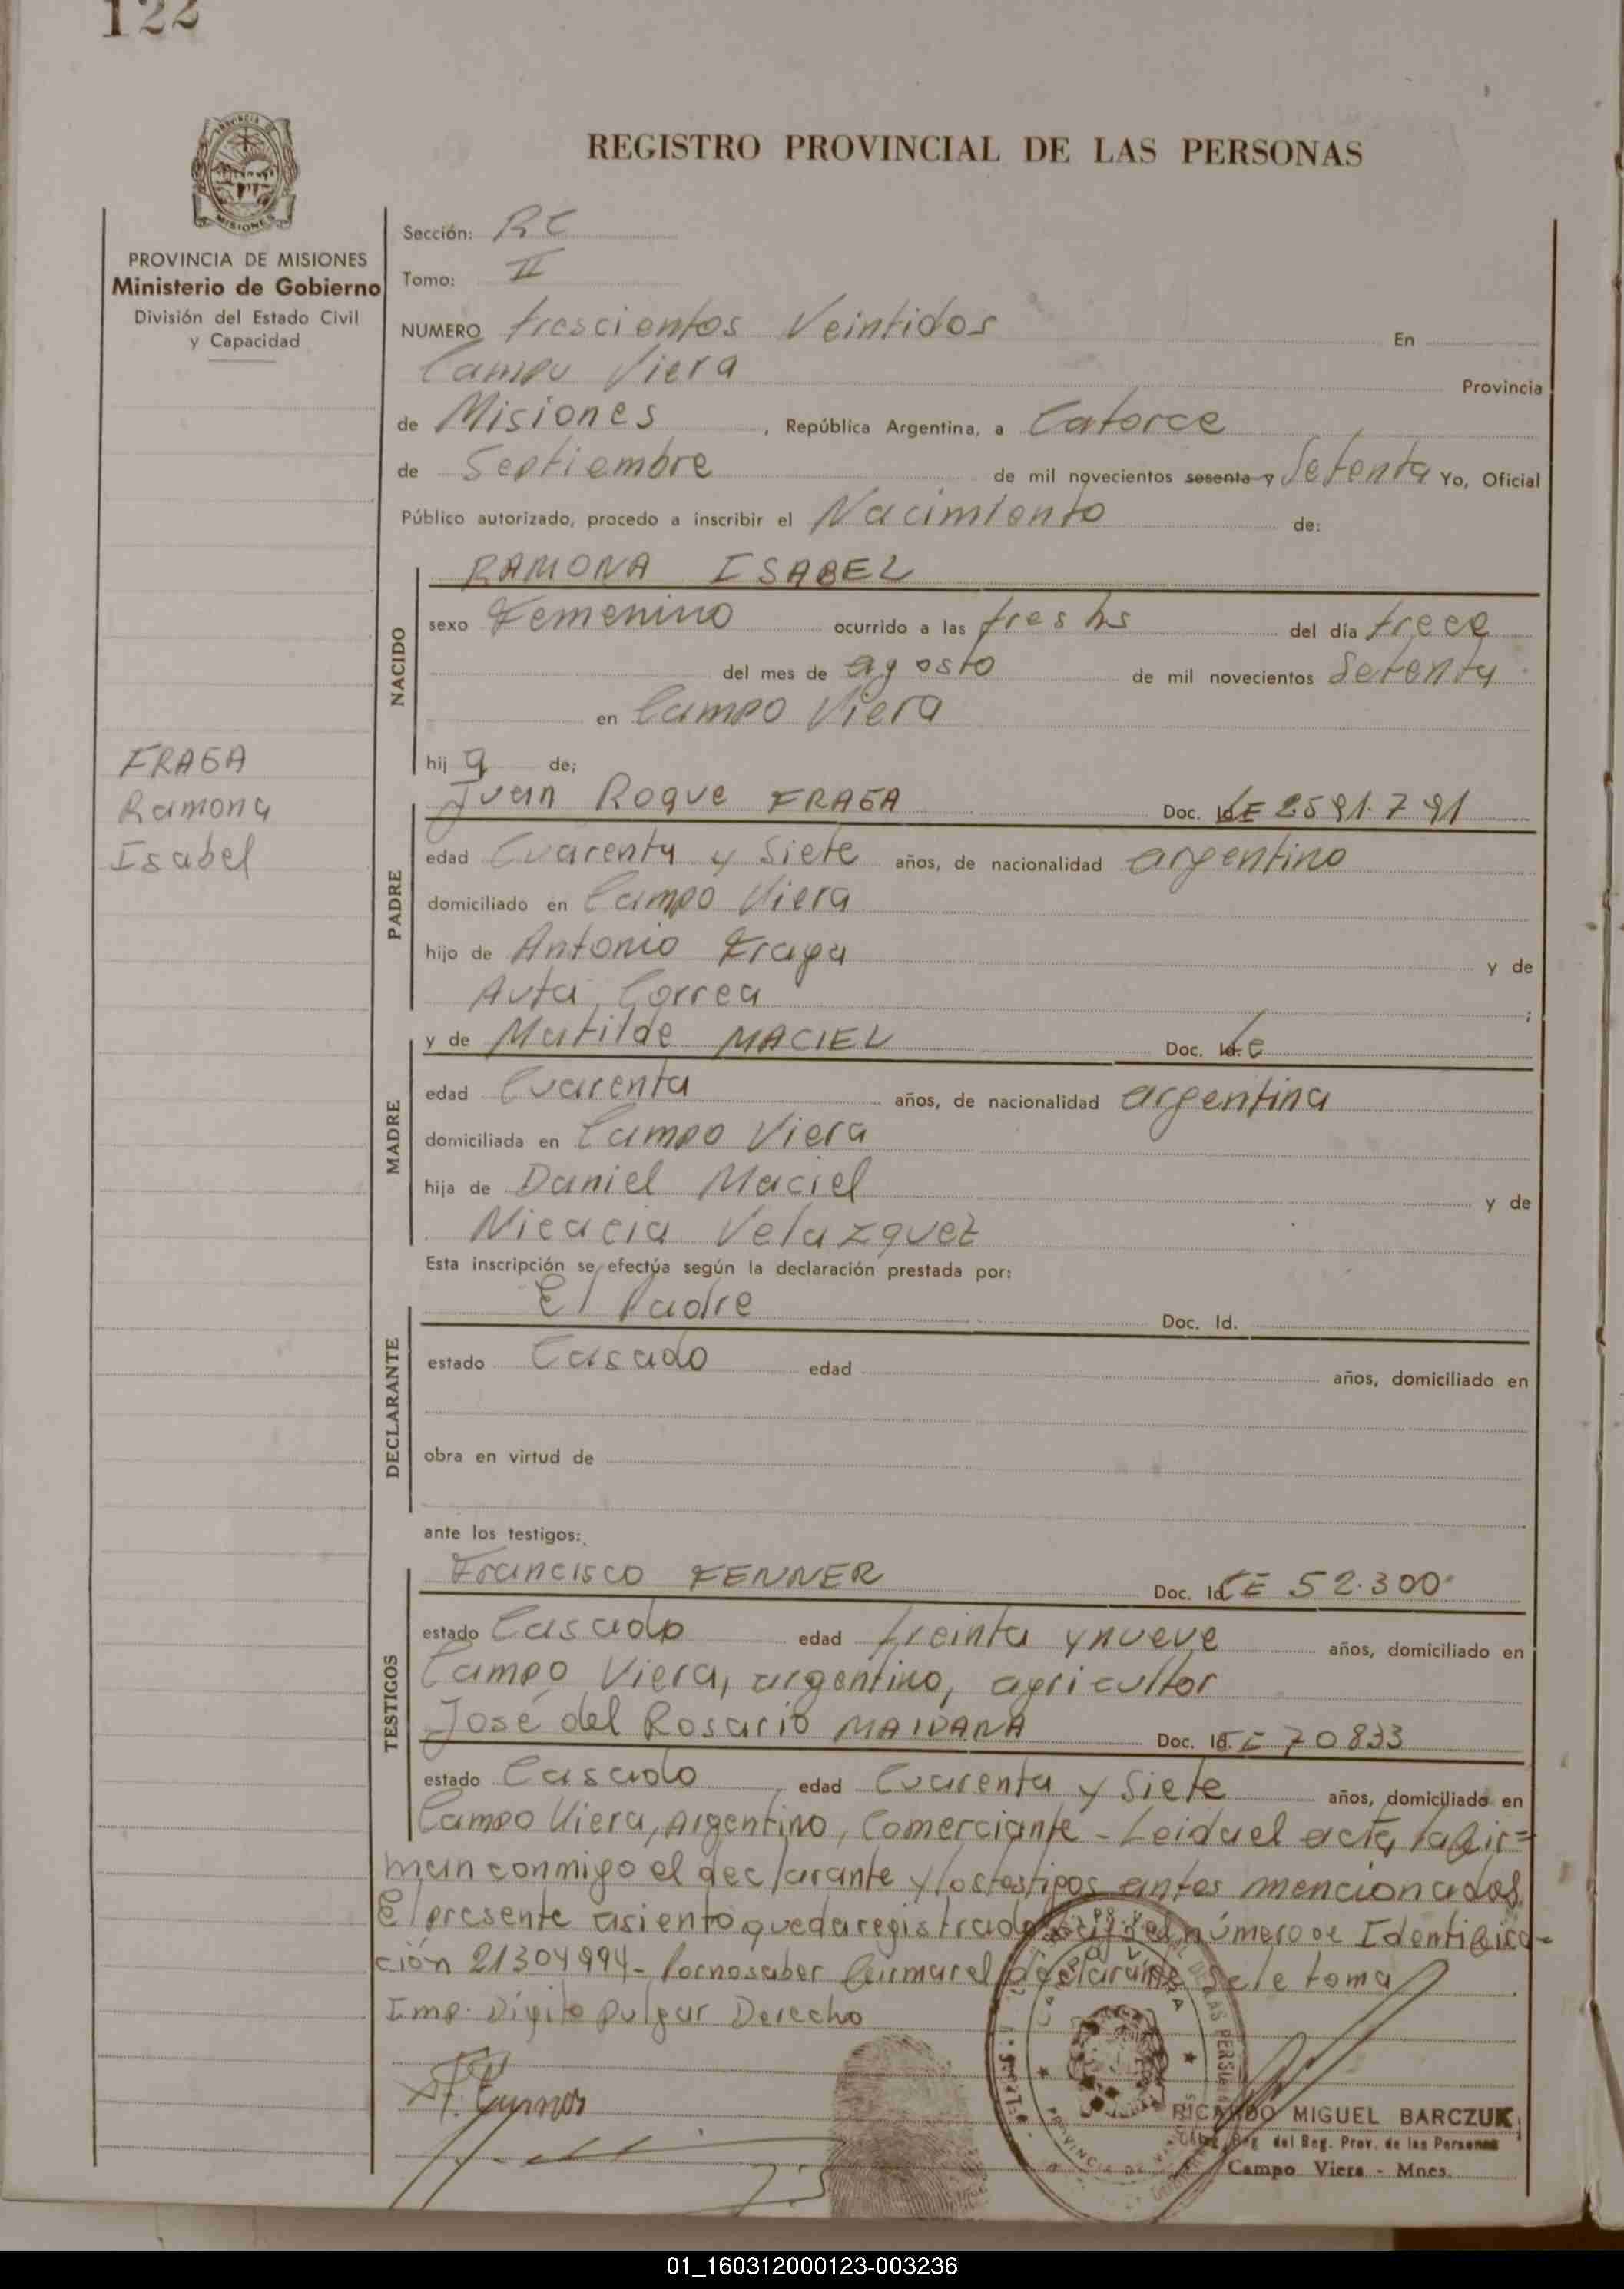 122
REGISTRO PROVINCIAL DE LAS PERSONAS
PROVINCIA DE MISIONES
Ministerio de Gobierno
División del Estado Civil
y Capacidad
FRAGA
Ramona
Isabel
Sección: RC
Tomo: II
NUMERO trescientos Veintidos En
Campo Viera Provincia
de Misiones, República Argentina, a Catorce
de Septiembre de mil novecientos sesenta y Setenta Yo, Oficial
Público autorizado, procedo a inscribir el Nacimiento de:
NACIDO
RAMONA ISABEL
sexo Femenino ocurrido a las tres hs del día trece
del mes de agosto de mil novecientos Setenta
en Campo Viera
hij a de;
PADRE
Juan Roque FRAGA Doc. Id LE 2591.791
edad Cuarenta y Siete años, de nacionalidad argentino
domiciliado en Campo Viera
hijo de Antonio Fraga y de
Auta Correa ;
MADRE
y de Matilde MACIEL Doc. Id.
edad Cuarenta años, de nacionalidad argentina
domiciliada en Campo Viera
hija de Daniel Maciel y de
Nicacia Velazquez
Esta inscripción se efectúa según la declaración prestada por:
DECLARANTE
El Padre Doc. Id.
estado Casado edad años, domiciliado en
obra en virtud de
ante los testigos:
TESTIGOS
Francisco FENNER Doc. Id CE 52.300
estado Casado edad treinta y nueve años, domiciliado en
Campo Viera, argentino, agricultor
José del Rosario MAIDANA Doc. Id. 70833
estado Casado edad Cuarenta y Siete años, domiciliado en
Campo Viera, Argentino, Comerciante - Leida el acta la fir=
man conmigo el declarante y los testigos antes mencionados
El presente asiento queda registrado número de Identifica-
ción 21304994- Por no saber firmar el declarante Se le toma
Imp. Digito pulgar Derecho
RICARDO MIGUEL BARCZUK
del Reg. Prov. de las Personas
Campo Viera - Mnes.
01_160312000123-003236